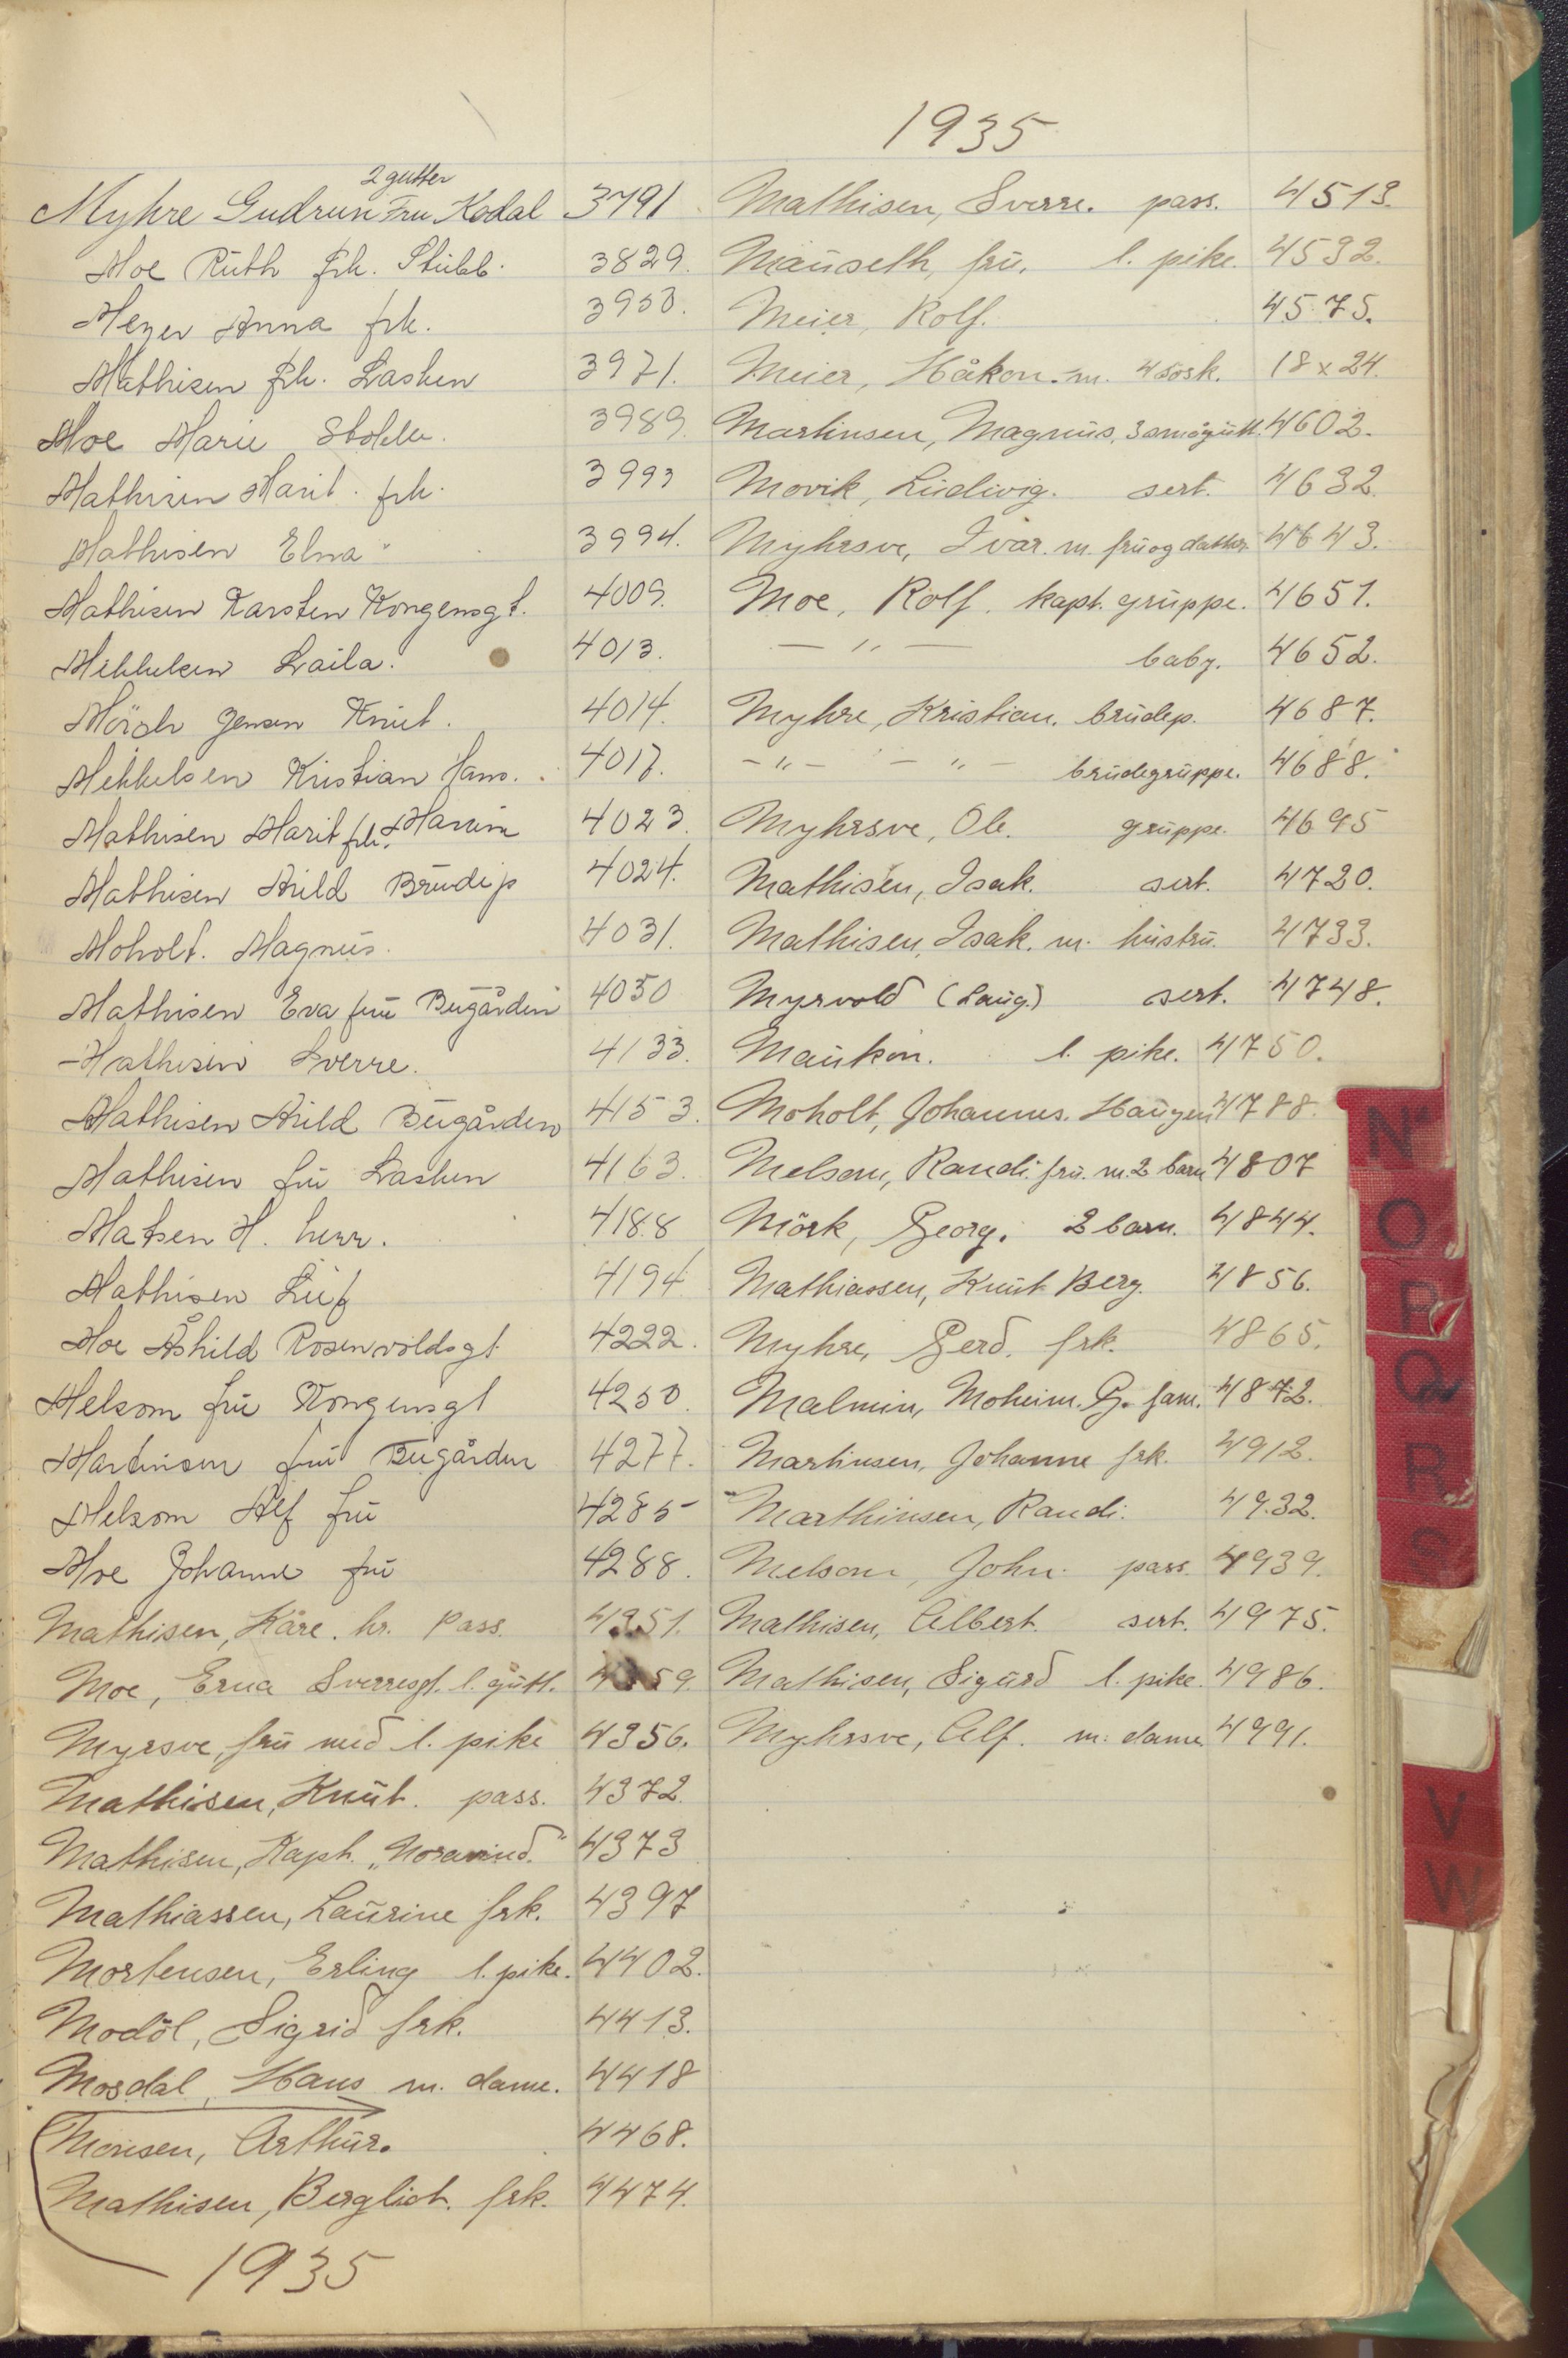 2 gutter
Myhre Gudrun Fru Kodal 3791
Moe Ruth frk. Stubb. 3829.
Meyer Anna frk. 3950.
Mathisen frk. Lasken 3971.
Moe Marie 3989.
Mathisen Marit. frk. 3993
Mathisen Elna " 3994.
Mathisen Karsten Kongensgt. 4009.
Mikkelsen Laila. 4013.
Mörch Jensen Knut. 4014.
Mikkelsen Kristian Hans. 4017.
Mathisen Marit frk. 4023.
Mathisen Arild Brudep 4024.
Moholt. Magnus. 4031.
Mathisen Eva fru Bugården 4050
Mathisen Sverre. 4133.
Mathisen Arild Bugården 4153.
Mathisen fru Lasken 4163.
Matsen H. herr. 4188
Mathisen Leif 4194
Moe Åshild Rosenvoldsgt 4222.
Melsom fru Kongensgt 4250.
Martinsen fru Bugården 4277.
Melsom Alf fru 4285
Moe Johanne fru 4288.
Mathisen, Kåre. hr. Pass. 4351.
Moe, Erna Sverresgt. l. gutt. 4359.
Myrsve, fru med l. pike 4356.
Mathisen, Knut. pass. 4372.
Mathisen, Kapt. „Noravind." 4373
Mathiassen, Laurine frk. 4397
Mortensen, Erling l. pike. 4402.
Modöl, Sigrid frk. 4413.
Mosdal, Hans m. dame. 4418
Monsen, Arthur. 4468.
Mathisen, Bergliot. frk. 4474.
1935
1935
Mathisen, Sverre. pass. 4513.
Mauseth, fru. l. pike. 4532.
Meier, Rolf. 4575.
Meier, Håkon. m. 4 søsk. 18 x 24.
Martinsen, Magnus, 3 smågutt. 4602.
Movik, Ludvig. sert. 4632.
Myhrsve, Ivar. m. fru og datter. 4643.
Moe, Rolf. kapt. gruppe. 4651.
— " — baby. 4652.
Myhre, Kristian. brudep. 4687.
— " — — " — brudegruppe. 4688.
Myhrsve, Ole. gruppe. 4695
Mathisen, Isak. sert. 4720.
Mathisen, Isak. m. hustru. 4733.
Myrvold (Laug.) sert. 4748.
Maukon. l. pike. 4750.
Moholt, Johannes. Haugen 4788.
Melsom, Randi. fru. m. 2 barn 4807
Mörk, Georg. 2 barn. 4844.
Mathiassen, Knut Berg. 4856.
Myhre, Gerd. frk. 4865.
Malmin, Moheim. G. fam. 4872.
Martinsen, Johanne frk. 4912.
Marthinsen, Randi. 4932.
Melsom, John. pass. 4939.
Mathisen, Albert. sert. 4975.
Mathisen, Sigurd l. pike. 4986.
Myhrsve, Alf. m. dame. 4991.
N
O
P
Q
R
S
V
W